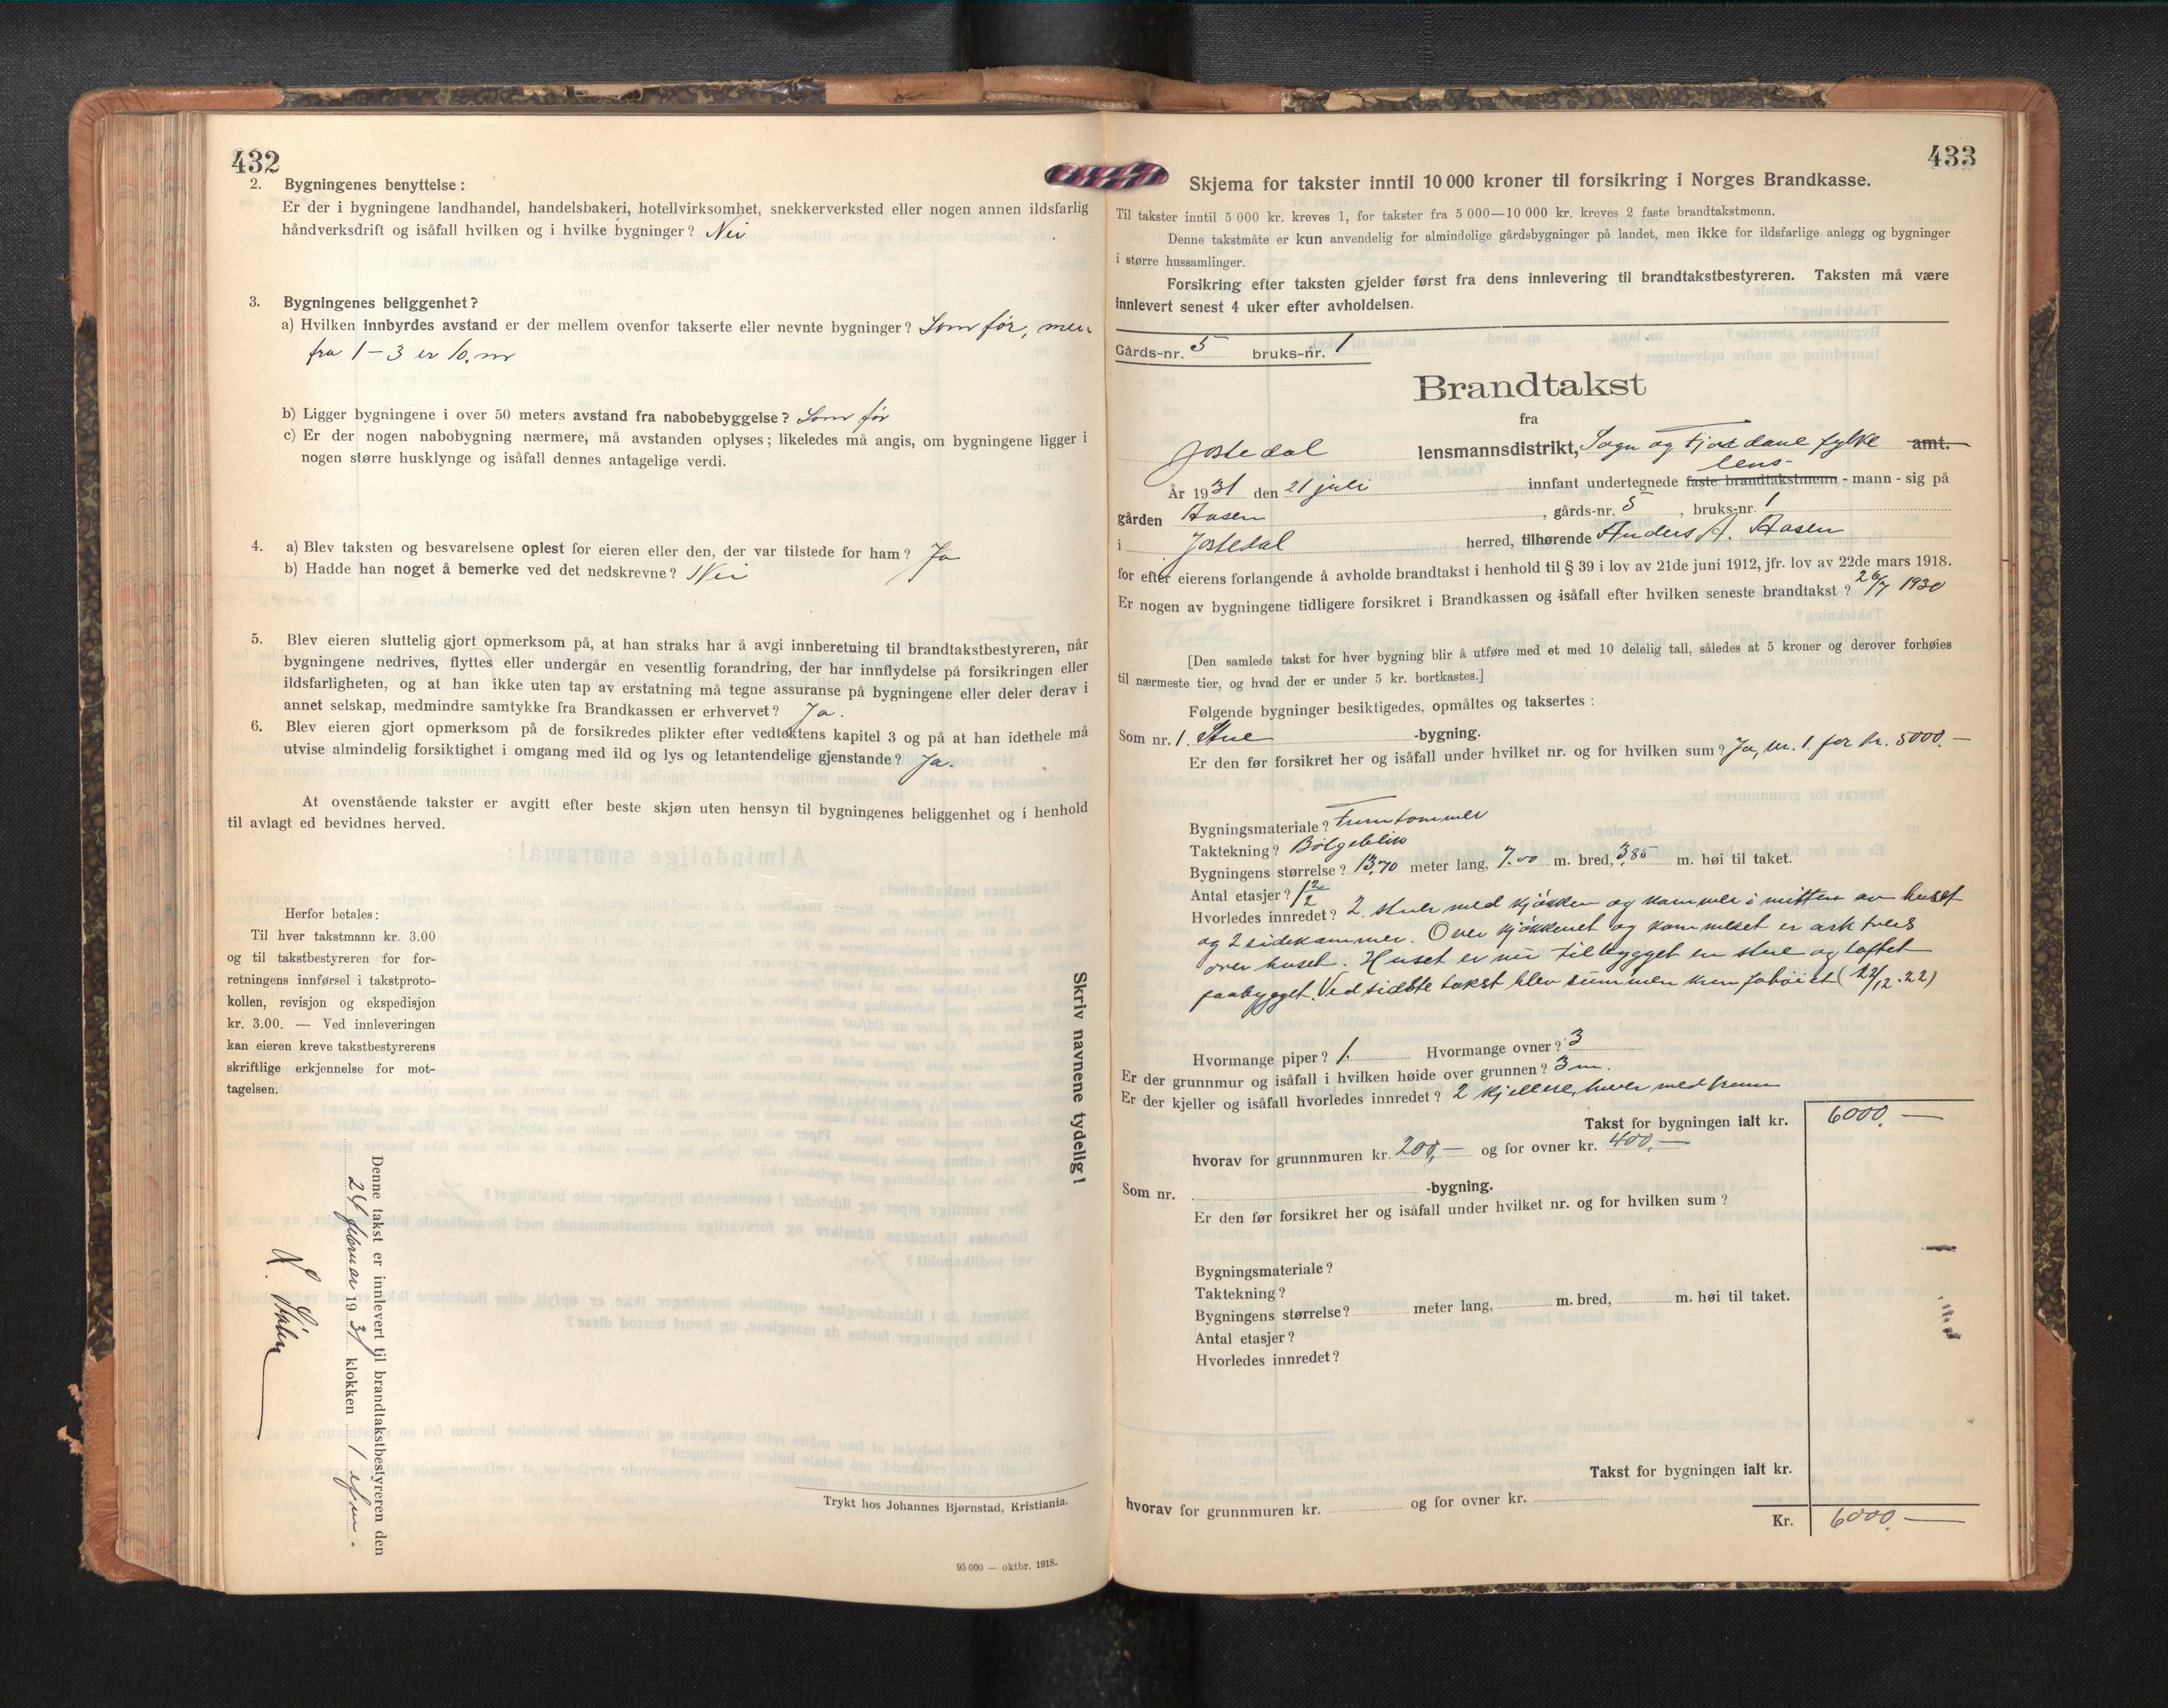 432
2. Bygningenes benyttelse:
Er der i bygningene landhandel, handelsbakeri, hotellvirksomhet, snekkerverksted eller nogen annen ildsfarlig
håndverksdrift og isåfall hvilken og i hvilke bygninger? Nei
3. Bygningenes beliggenhet?
a) Hvilken innbyrdes avstand er der mellem ovenfor takserte eller nevnte bygninger? Som før, men
fra 1 – 3 er 10. m
b) Ligger bygningene i over 50 meters avstand fra nabobebyggelse? Som før
c) Er der nogen nabobygning nærmere, må avstanden oplyses; likeledes må angis, om bygningene ligger i
nogen større husklynge og isåfall dennes antagelige verdi.
4. a) Blev taksten og besvarelsene oplest for eieren eller den, der var tilstede for ham? Ja
b) Hadde han noget å bemerke ved det nedskrevne? Nei
5. Blev eieren sluttelig gjort opmerksom på, at han straks har å avgi innberetning til brandtakstbestyreren, når
bygningene nedrives, flyttes eller undergår en vesentlig forandring, der har innflydelse på forsikringen eller
ildsfarligheten, og at han ikke uten tap av erstatning må tegne assuranse på bygningene eller deler derav i
annet selskap, medmindre samtykke fra Brandkassen er erhvervet? Ja.
6. Blev eieren gjort opmerksom på de forsikredes plikter efter vedtektens kapitel 3 og på at han idethele må
utvise almindelig forsiktighet i omgang med ild og lys og letantendelige gjenstande? Ja.
At ovenstående takster er avgitt efter beste skjøn uten hensyn til bygningenes beliggenhet og i henhold
til avlagt ed bevidnes herved.
Herfor betales:
Til hver takstmann kr. 3.00
og til takstbestyreren for for-
retningens innførsel i takstproto-
kollen, revisjon og ekspedisjon
kr. 3.00. — Ved innleveringen
kan eieren kreve takstbestyrerens
skriftlige erkjennelse for mot-
tagelsen.
Skriv navnene tydelig!
Denne takst er innlevert til brandtakstbestyreren den
24 februar 1931 klokken 1 efm.
Trykt hos Johannes Bjørnstad, Kristiania.
95 000 — oktbr. 1918.
433
Skjema for takster inntil 10 000 kroner til forsikring i Norges Brandkasse.
Til takster inntil 5 000 kr. kreves 1, for takster fra 5 000—10 000 kr. kreves 2 faste brandtakstmenn.
Denne takstmåte er kun anvendelig for almindelige gårdsbygninger på landet, men ikke for ildsfarlige anlegg og bygninger
i større hussamlinger.
Forsikring efter taksten gjelder først fra dens innlevering til brandtakstbestyreren. Taksten må være
innlevert senest 4 uker efter avholdelsen.
Gårds-nr. 5 bruks-nr. 1
Brandtakst
fra
Jostedal lensmannsdistrikt, Sogn og Fjordane fylke amt.
lens-
År 1931 den 21 juli innfant undertegnede faste brandtakstmenn - mann - sig på
gården Aasen, gårds-nr. 5, bruks-nr. 1
i Jostedal herred, tilhørende Anders A. Aasen
for efter eierens forlangende å avholde brandtakst i henhold til § 39 i lov av 21de juni 1912, jfr. lov av 22de mars 1918.
Er nogen av bygningene tidligere forsikret i Brandkassen og isåfall efter hvilken seneste brandtakst? 26/7 1930
[Den samlede takst for hver bygning blir å utføre med et med 10 delelig tall, således at 5 kroner og derover forhøies
til nærmeste tier, og hvad der er under 5 kr. bortkastes.]
Følgende bygninger besiktigedes, opmåltes og taksertes:
Som nr. 1. Stue -bygning.
Er den før forsikret her og isåfall under hvilket nr. og for hvilken sum? Ja, nr. 1. for kr. 5000.–
Bygningsmateriale? Furutømmer
Taktekning? Bølgeblikk
Bygningens størrelse? 13,70 meter lang, 7.00 m. bred, 3,85 m. høi til taket.
Antal etasjer? 1 1/2
Hvorledes innredet? 2 stuer med kjøkken og kammer i mitten av huset
og 2 sidekammer. Over kjøkkenet og kammeret er ark tvers
over huset. Huset er nu tilbygget en stue og loftet
paabygget. Ved sidste takst blev summen kun forhøiet (22/12.22)
Hvormange piper? 1. Hvormange ovner? 3
Er der grunnmur og isåfall i hvilken høide over grunnen? 3 m.
Er der kjeller og isåfall hvorledes innredet? 2 kjellere, hver med
Takst for bygningen ialt kr. 6000.–
hvorav for grunnmuren kr. 200,– og for ovner kr. 400,–
Som nr. -bygning.
Er den før forsikret her og isåfall under hvilket nr. og for hvilken sum?
Bygningsmateriale?
Taktekning?
Bygningens størrelse? meter lang, m. bred, m. høi til taket.
Antal etasjer?
Hvorledes innredet?
Takst for bygningen ialt kr.
hvorav for grunnmuren kr. og for ovner kr.
Kr. 6000.–